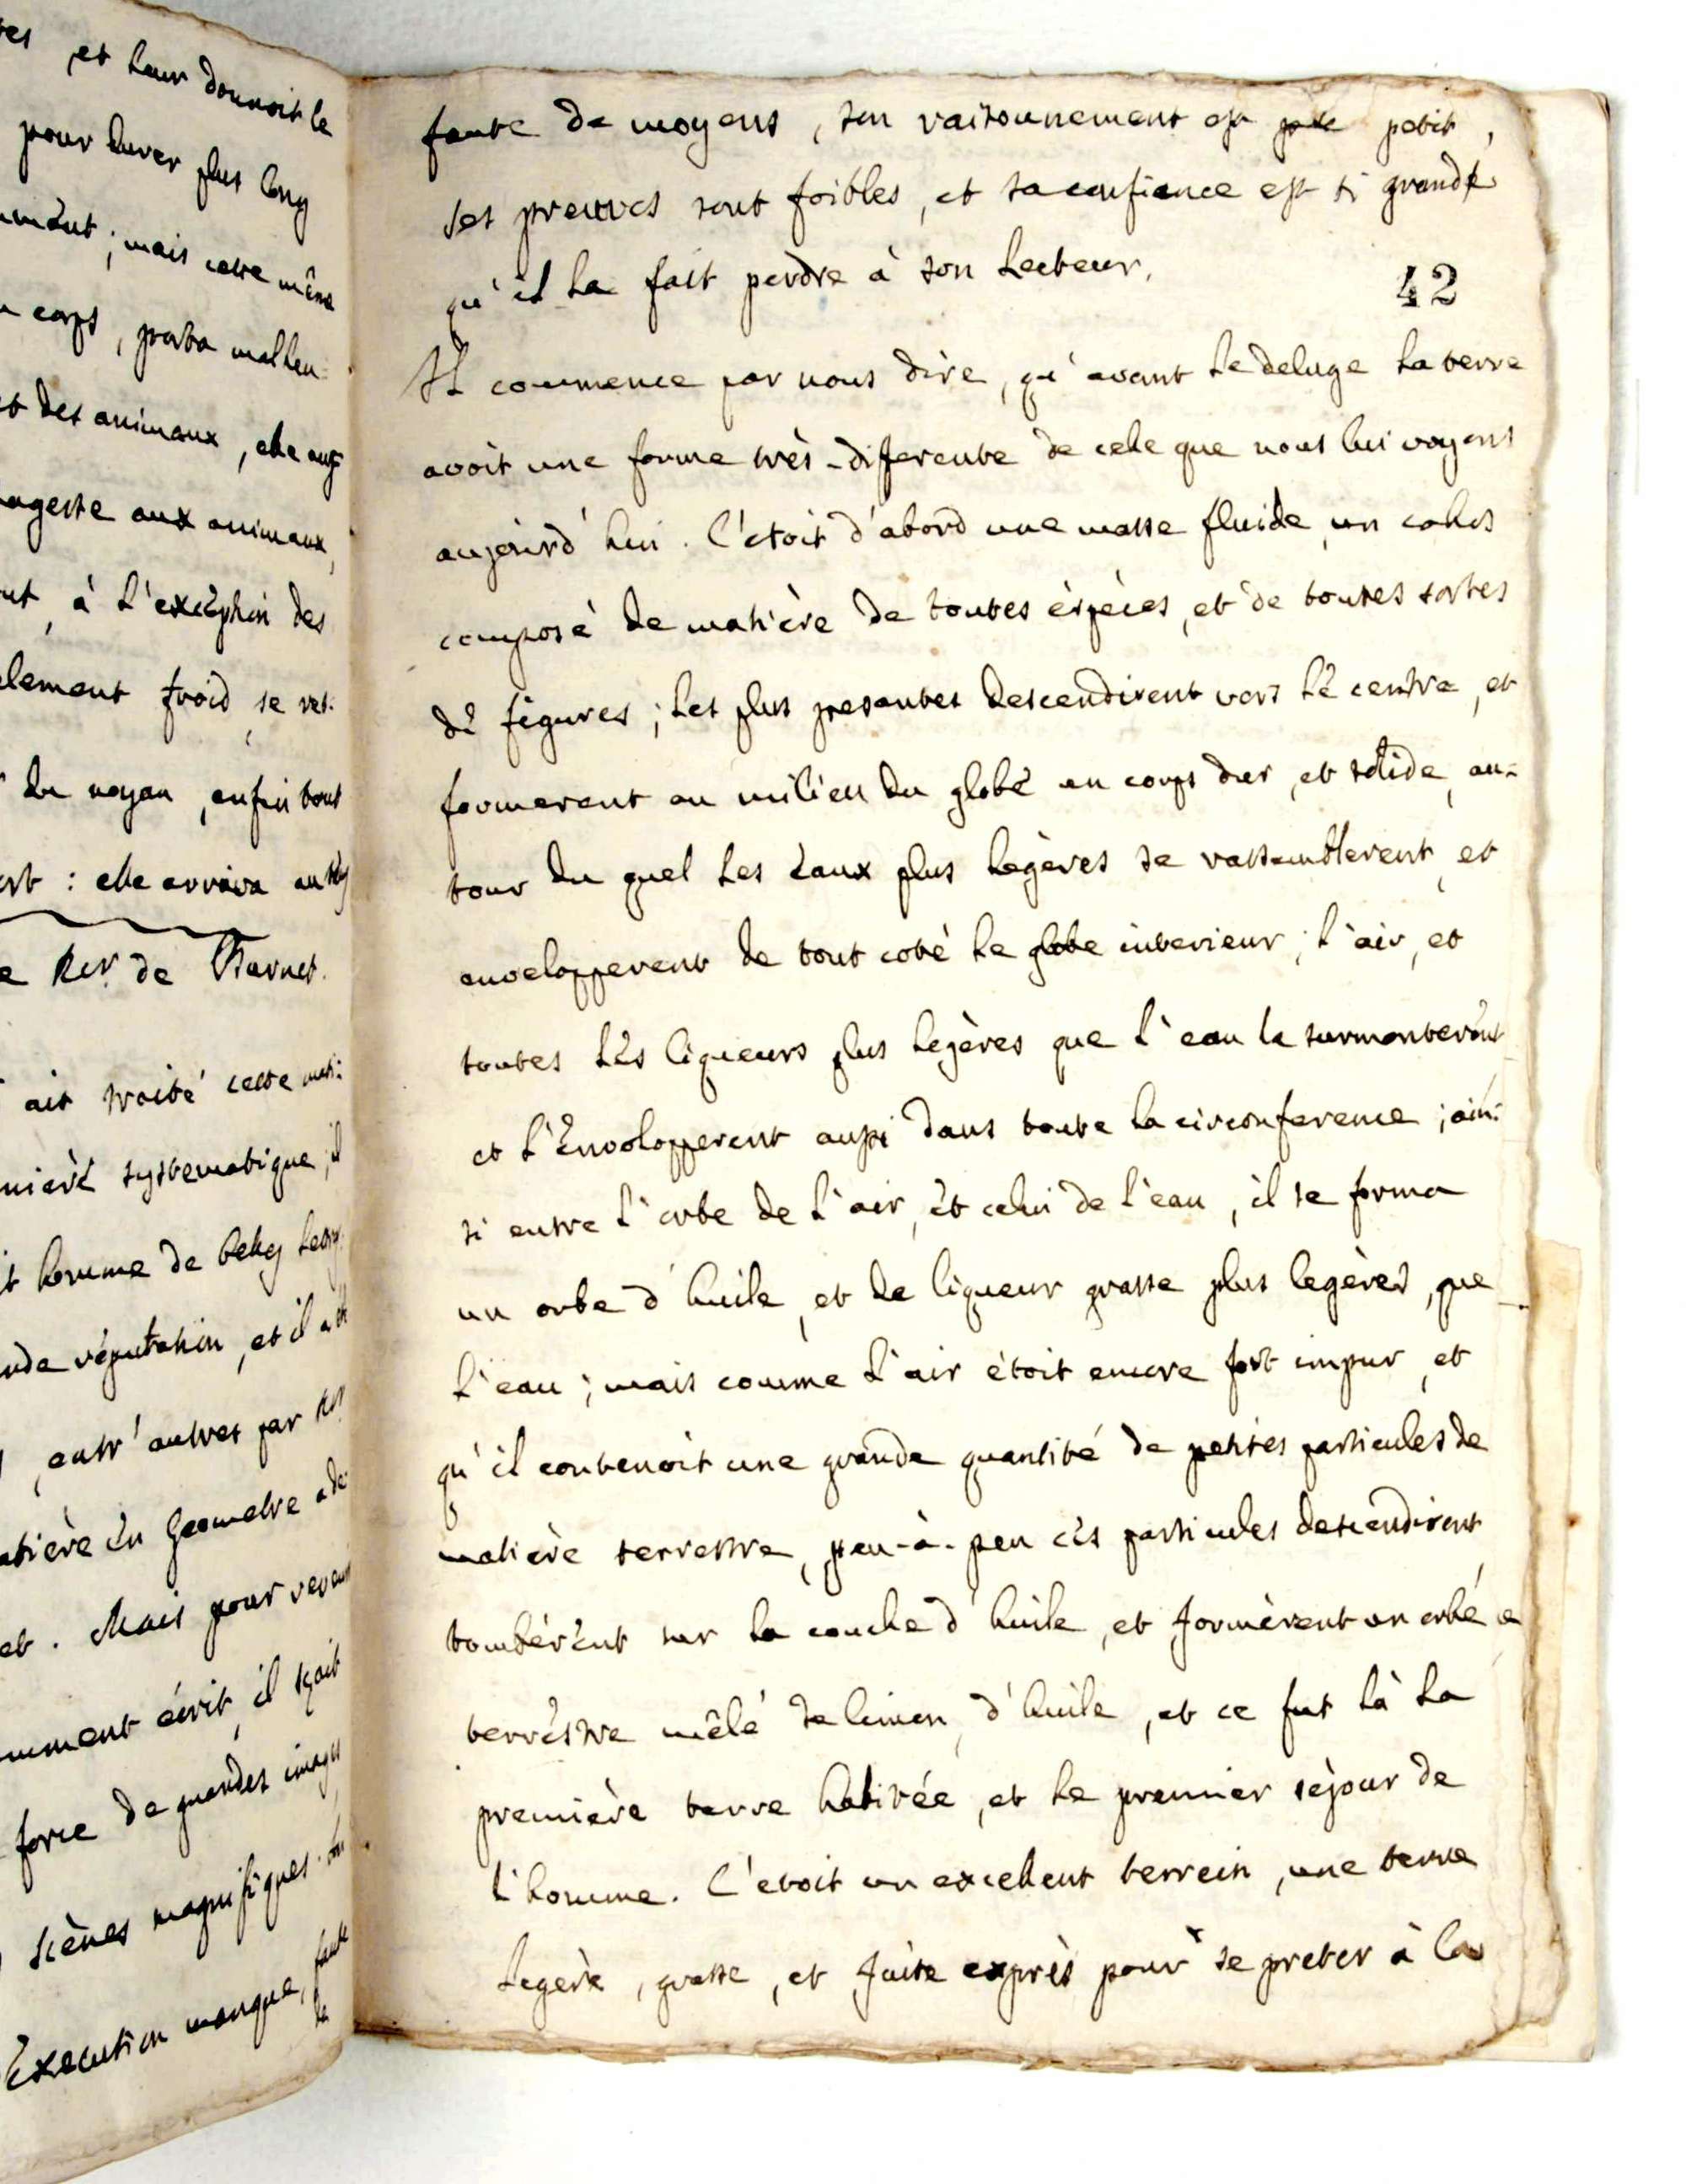 et leur donnoit le
pour durer plus long
mais cette même
corps, porta malheu-
des animaux, elle aug-
aux animaux,
à l'excéption des
froid, se ref-
du noyau, enfin tout
: elle arriva au
de Burnet.
ait traité cette mati-
systematique, il
homme de belles
réputation, et il
entr'autres par
Geometre
. Mais pour
écrit, il sçait
force de grandes images
scènes magnifiques
Execution manque, faute
de
faute de moyens, son raisonnement est petit,
ses preuves sont foibles, et sa confiance est si grande
qu'il la fait perdre à son Lecteur.
42
Il commence par nous dire, qu'avant le deluge la terre
avoit une forme très-differente de celle que nous lui voyons
aujourd'hui. C'étoit d'abord une masse fluide, un cahos
composé de matière de toutes éspèces, et de toutes sortes
de figures; les plus pesantes descendirent vers le centre, et
formerent au milieu du globe un corps dur, et solide, au-
tour du quel les éaux plus legères se rassemblerent, et
envelopperent de tout coté le globe interieur; l'air, et
toutes lés liqueurs plus legères que l'eau la surmonterent
et l'Envelopperent aussi dans toute la circonference; ain-
si entre l'orbe de l'air, et celui de l'eau, il se forma
un orbe d'huile, et de liqueur grasse plus legères, que
l'eau; mais comme l'air étoit encore fort impur, et
qu'il contenoit une grande quantité de petites particules de
matière terrestre, peu-à-peu cés particules descendirent
tombérent sur la couche d'huile, et formèrent un orbe
terrèstre mêlé de limon, d'huile, et ce fut là la
première terre habitée, et le premier séjour de
l'homme. C'étoit un excellent terrein, une terre
legère, grasse, et faite exprès pour se preter à la